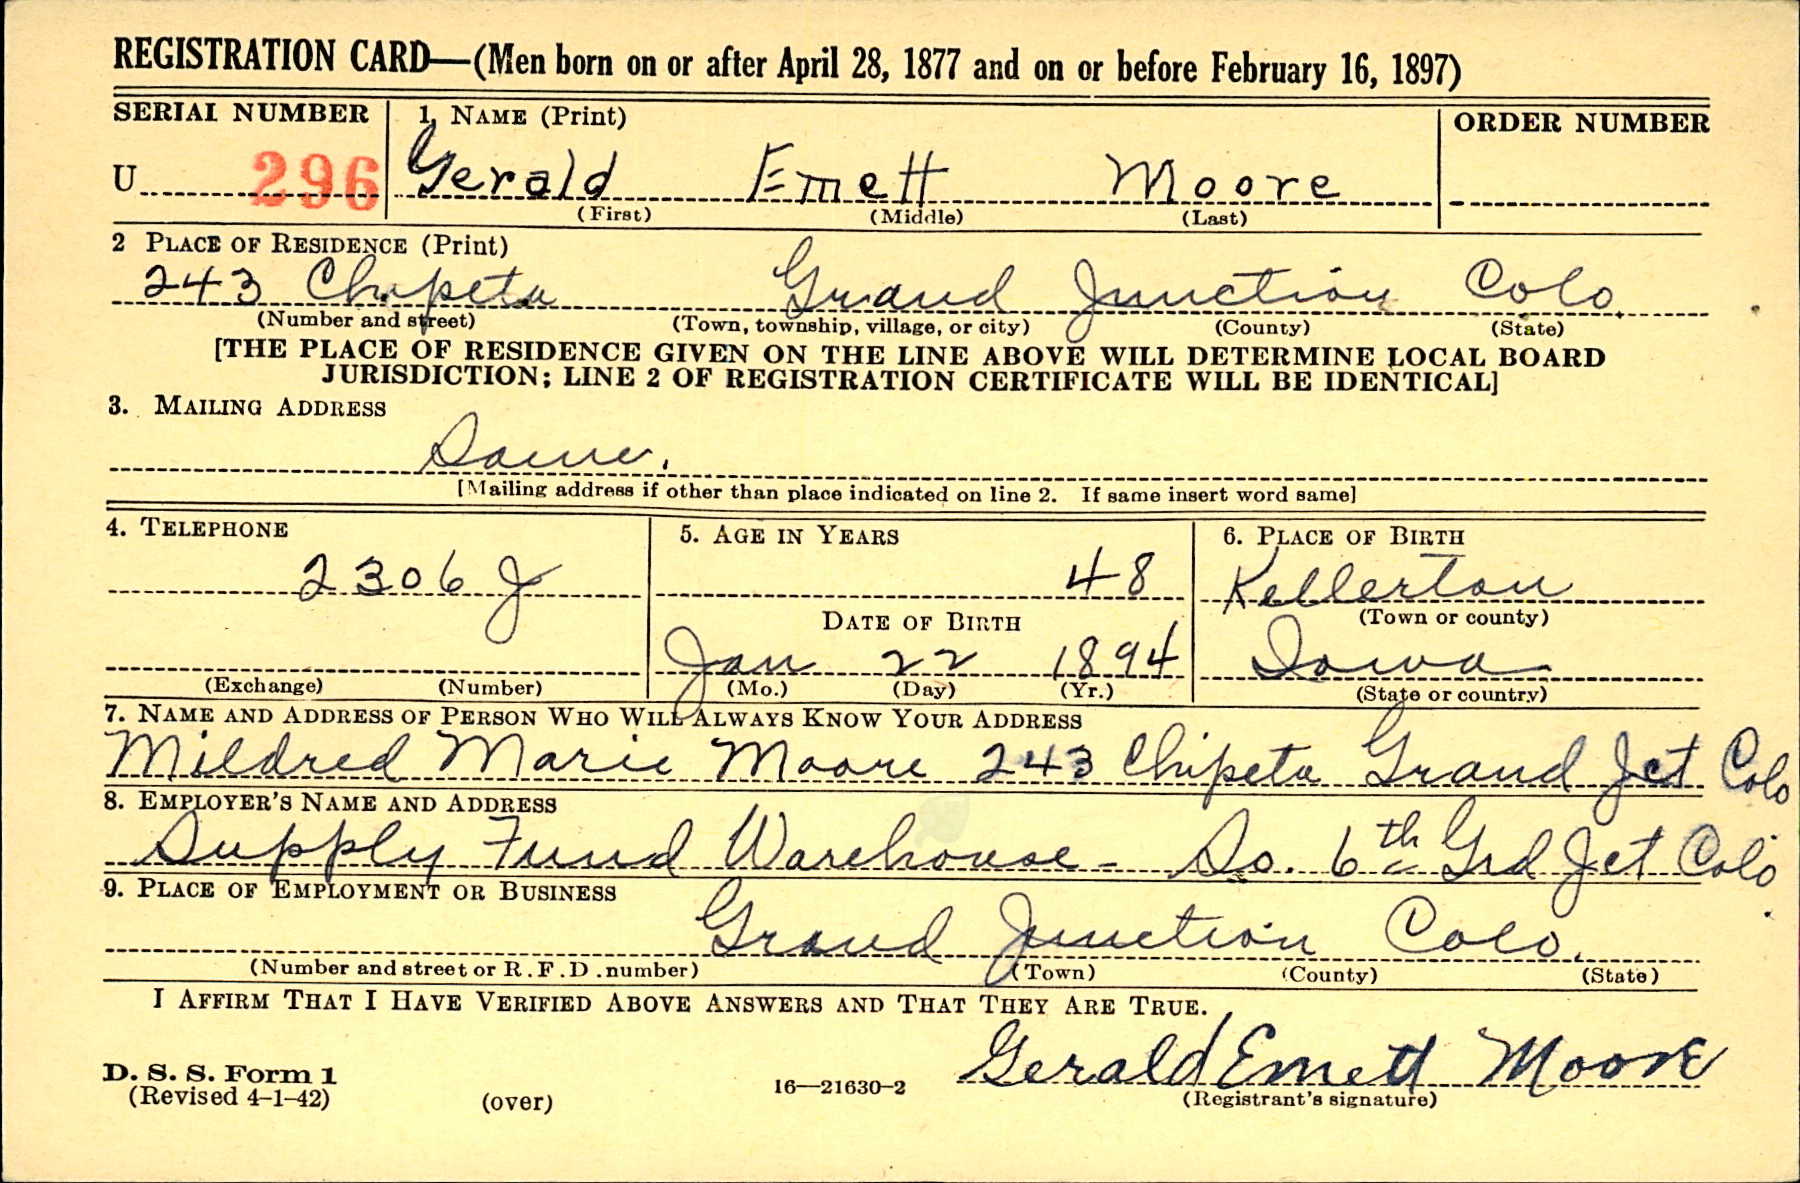 REGISTRATION CARD—(Men born on or after April 28, 1877 and on or before February 16, 1897)
SERIAL NUMBER 1. NAME (Print) ORDER NUMBER
U 296 Gerald Emett Moore
(First) (Middle) (Last)
2 PLACE OF RESIDENCE (Print)
243 Chipeta Grand Junction Colo.
(Number and street) (Town, township, village, or city) (County) (State)
[THE PLACE OF RESIDENCE GIVEN ON THE LINE ABOVE WILL DETERMINE LOCAL BOARD
JURISDICTION; LINE 2 OF REGISTRATION CERTIFICATE WILL BE IDENTICAL]
3. MAILING ADDRESS
Same.
[Mailing address if other than place indicated on line 2. If same insert word same]
4. TELEPHONE 5. AGE IN YEARS 6. PLACE OF BIRTH
2306 J 48 Kellerton
DATE OF BIRTH (Town or county)
Jan 22 1894 Iowa
(Exchange) (Number) (Mo.) (Day) (Yr.) (State or country)
7. NAME AND ADDRESS OF PERSON WHO WILL ALWAYS KNOW YOUR ADDRESS
Mildred Marie Moore 243 Chipeta Grand Jct Colo
8. EMPLOYER'S NAME AND ADDRESS
Supply Fund Warehouse - So. 6th Grd Jct Colo
9. PLACE OF EMPLOYMENT OR BUSINESS
Grand Junction Colo.
(Number and street or R.F.D. number) (Town) (County) (State)
I AFFIRM THAT I HAVE VERIFIED ABOVE ANSWERS AND THAT THEY ARE TRUE.
Gerald Emett Moore
D. S. S. Form 1
(Revised 4-1-42) (over) 16—21630-2 (Registrant's signature)